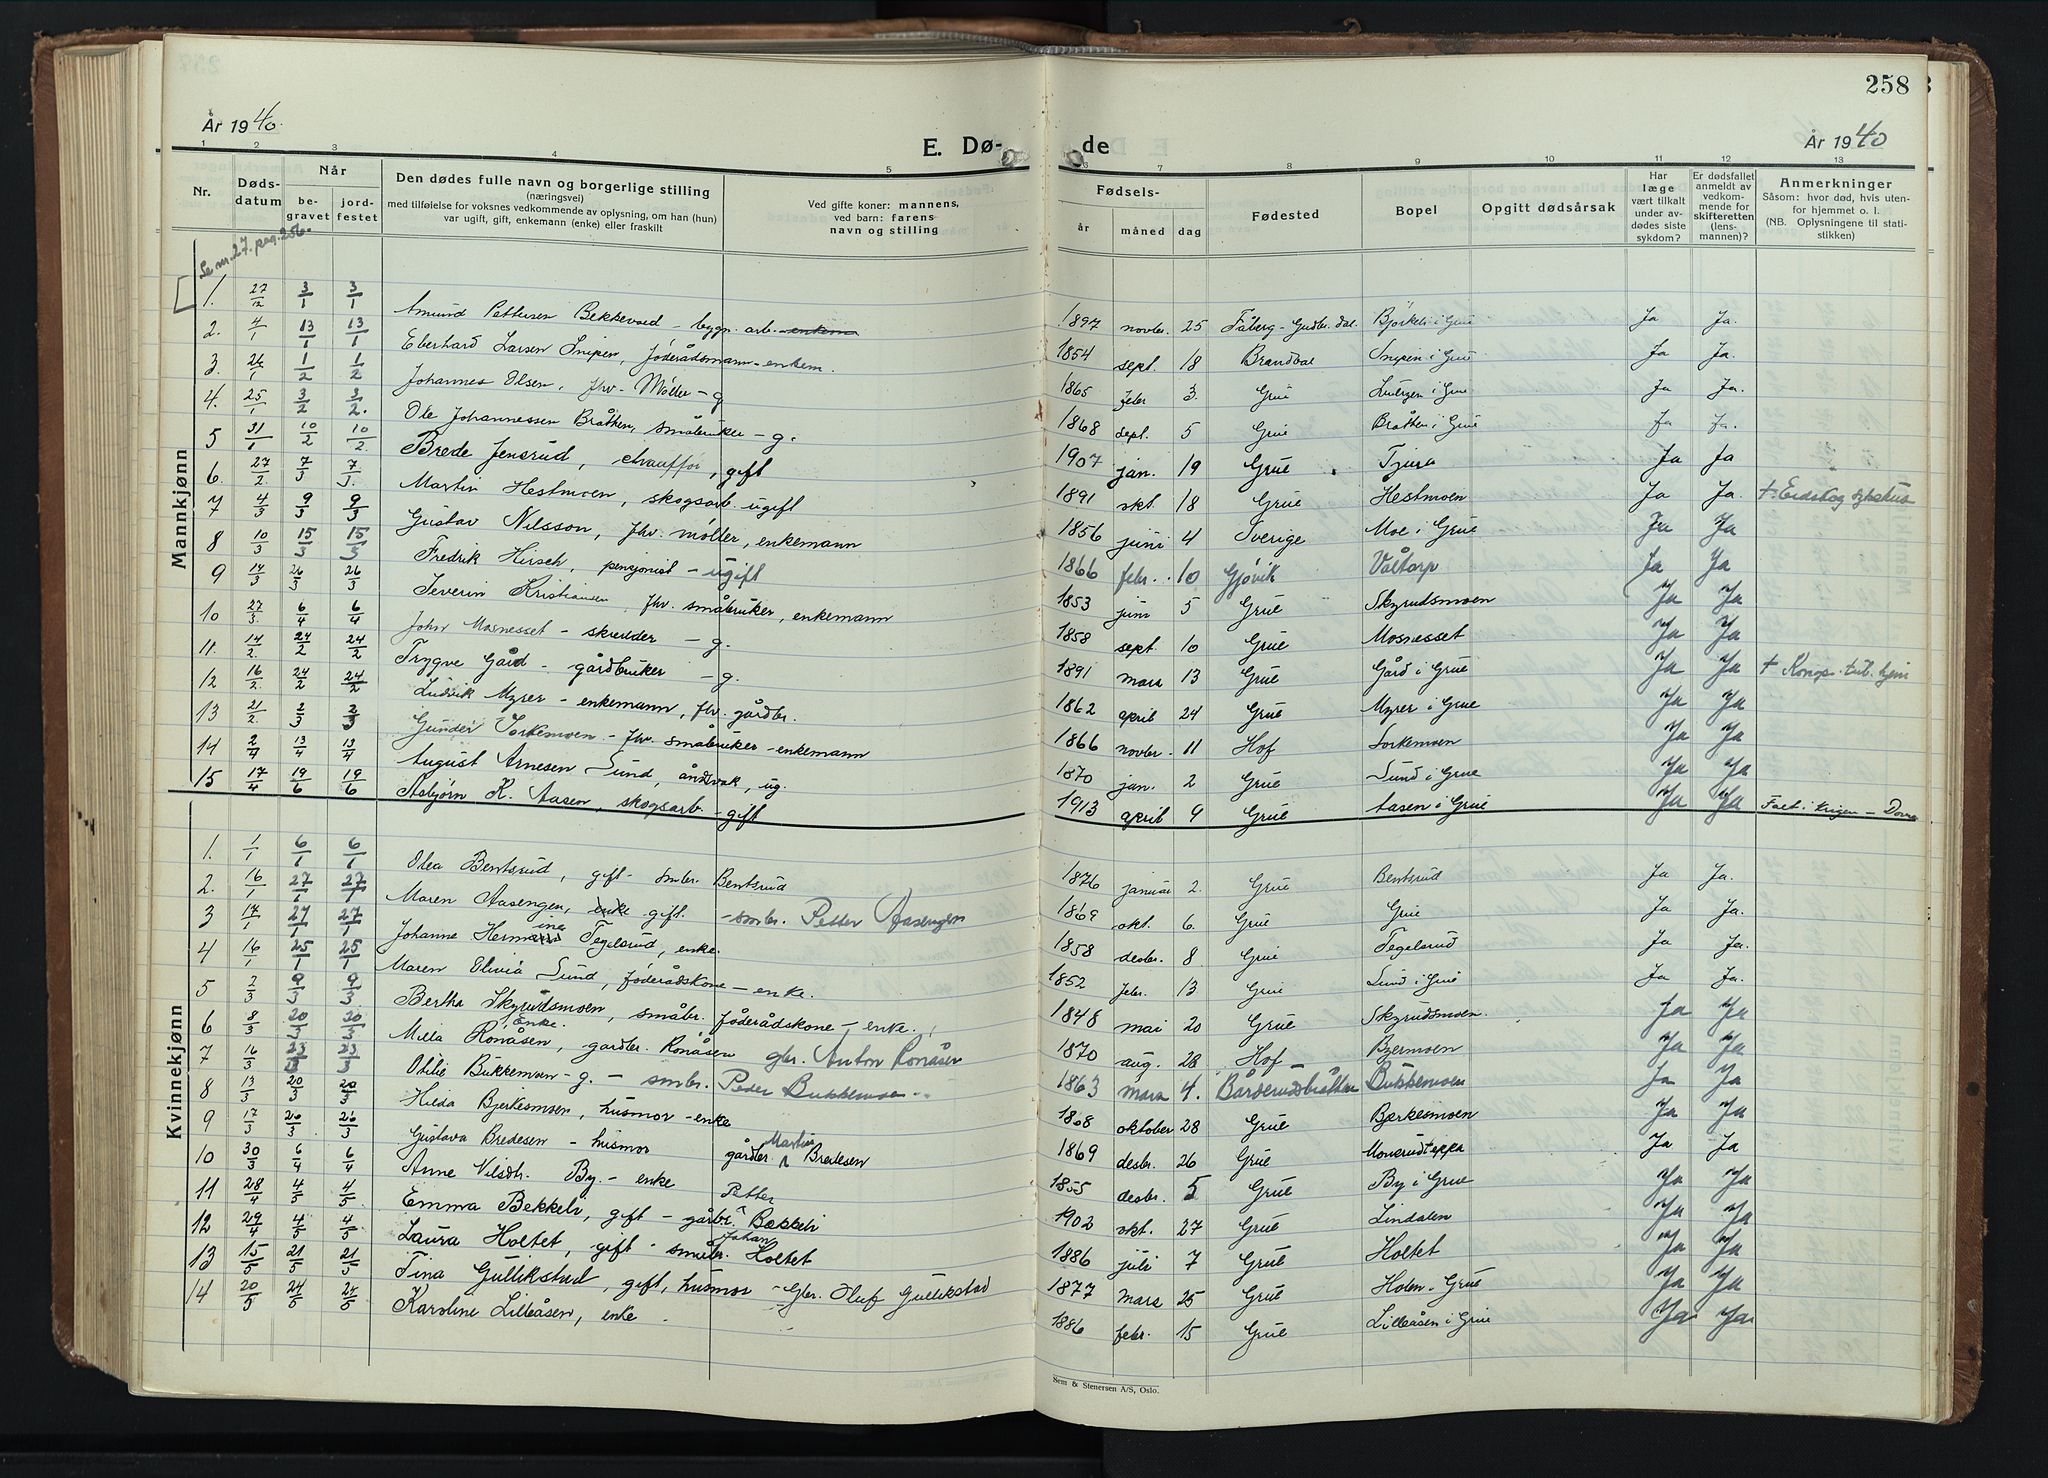 258
År 1940.
E. Døde
År 1940
1 2 3 4 5 6 7 8 9 10 11 12 13
Nr. Døds-datum Når be-gravet jord-festet Den dødes fulle navn og borgerlige stilling (næringsvei) med tilføielse for voksnes vedkommende av oplysning, om han (hun) var ugift, gift, enkemann (enke) eller fraskilt Ved gifte koner: mannens, ved barn: farens navn og stilling Fødsels- år måned dag Fødested Bopel Opgitt dødsårsak Har læge vært tilkalt under av-dødes siste sykdom? Er dødsfallet anmeldt av vedkom-mende for skifteretten (lens-mannen)? Anmerkninger Såsom: hvor død, hvis uten-for hjemmet o. l. (NB. Oplysningene til stati-stikken)
Se nr. 27. pag. 256.
Mannkjønn
1. 27/12 3/1 3/1 Amund Pettersen Bekkevold - bygn. arb. enkem 1897 novbr. 25 Fåberg - Gudbr. dal. Bjørkeli i Grue Ja Ja.
2. 4/1 13/1 13/1 Eberhard Larsen Snipen, föderådsmann - enkem. 1854 sept. 18 Brandval Snipen i Grue Ja Ja.
3. 26/1 1/2 1/2 Johannes Olsen, fhv. Møller - g 1865 febr 3. Grue i Grue Ja Ja.
4. 25/1 3/2 3/2. Ole Johannessen Bråthen, småbruker - g. 1868 sept. 5 Grue Bråthen i Grue Ja Ja.
5 31/1 10/2 10/2. Brede Jensrud, chauffør, gift 1907 jan. 19 Grue Tjura Ja Ja
6. 27/2. 7/3 7/3. Martin Hestmoen, skogsarb. ugift 1891 okt. 18 Grue Hestmoen Ja Ja. + Eidskog sykehus
7 4/3 9/3 9/3 Gustav Nilsson, fhv. møller, enkemann 1856 juni 4 Sverige Moe i Grue Ja Ja
8 10/3 15/3 15/3 Fredrik Hirsch, pensjonist - ugift 1866 febr. 10 Gjøvik Våltorp Ja Ja
9 14/3 26/3 26/3 Severin Kristiansen fhv. småbruker, enkemann 1853 juni 5 Grue Skyrudsmoen Ja Ja
10 27/3. 6/4 6/4 John Mosnesset - skredder - g. 1858 sept. 10 Grue Mosnesset Ja Ja
11. 14/2. 24/2 24/2 Trygve Gård - gårdbruker - g. 1891 mars 13 Grue Gård i Grue Ja Ja + Kongs. tub. hjem
12 16/2. 24/2 24/2 Ludvik Myrer - enkemann, fhv. gårdbr. 1862 april 24 Grue Myrer i Grue Ja Ja
13 21/2. 2/3 2/3 Gunder Torkemoen - fhv. småbruker - enkemann 1866 novbr. 11 Hof Torkemoen Ja Ja
14 2/4 13/4 13/4 August Arnesen Sund, åndsvak, ug. 1870 jan. 2 Grue Sund i Grue Ja Ja
15 17/4 19/6 19/6 Asbjørn K. Aasen, skogsarb. - gift 1913 april 9 Grue Aasen i Grue Ja Ja Falt i krigen - Dovre
Kvinnekjønn
1. 1/1 6/1 6/1 Olea Bentsrud, gift - smbr. Bentsrud 1876 januar 2. Grue Bentsrud Ja Ja.
2. 16/1 27/1 27/1 Maren Aasengen, enke gift. - smbr. Petter Aasengen 1869 okt. 6. Grue Grue Ja Ja.
3 17/1 27/1 27/1 Johanne Hermine Tegelsrud, enke. 1858 desbr. 8 Grue Tegelsrud Ja Ja.
4 16/1 25/1 25/1 Maren Olivia Sund, föderådskone - enke. 1852 febr. 13 Grue Sund i Grue Ja Ja.
5 2/3 9/3 9/3 Bertha Skyrudsmoen, småbr. föderådskone - enke. 1848 mai 20 Grue Skyrudsmoen. Ja Ja
6 8/3 20/3 20/3 Milla Ronåsen, enke. gardbr. Ronåsen gbr. Anton Ronåsen 1870 aug. 28 Hof - Byermoen Ja Ja
7 16/3 23/3 23/3 Otilie Bukkemoen - g. - smbr. Peder Bukkemoen 1863 mars 4. Bårderudsbråthen Bukkemoen Ja Ja
8 13/3 20/3 20/3 Hilda Bjerkesmoen, husmor - enke 1868 oktober 28 Grue Bjerkesmoen Ja Ja
9 17/3 26/3 26/3 Gustava Bredesen - husmor gårdbr. Martin Bredesen 1869 desbr. 26 Grue Monsrudteppa Ja Ja
10 30/3 6/4 6/4 Anne Nilsdtr. By. - enke 1855 desbr. 5 Grue By i Grue Ja Ja
11 28/4 4/5 4/5 Emma Bekkeli, gift - gårbr. Petter Bekkeli 1902 okt. 27 Grue Lindalen Ja Ja
12 29/4 4/5 4/5 Laura Holtet, gift - småbr. Johan Holtet 1886 juli 7 Grue Holtet Ja Ja
13 15/5 21/5 21/5 Tina Gullikstad, gift, husmor - Gbr. Oluf Gullikstad 1877 mars 25 Grue Holen i Grue Ja Ja
14 20/5 24/5 24/5 Karoline Lilleåsen, enke 1886 febr. 15 Grue Lilleåsen i Grue Ja Ja
Sem & Stenersen A/S, Oslo.